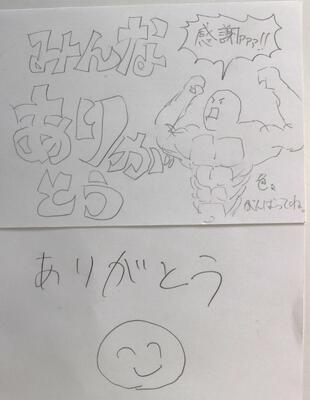 みんな
感謝ァァァ!!
ありが
とう
色々
がんばってね。
ありがとう